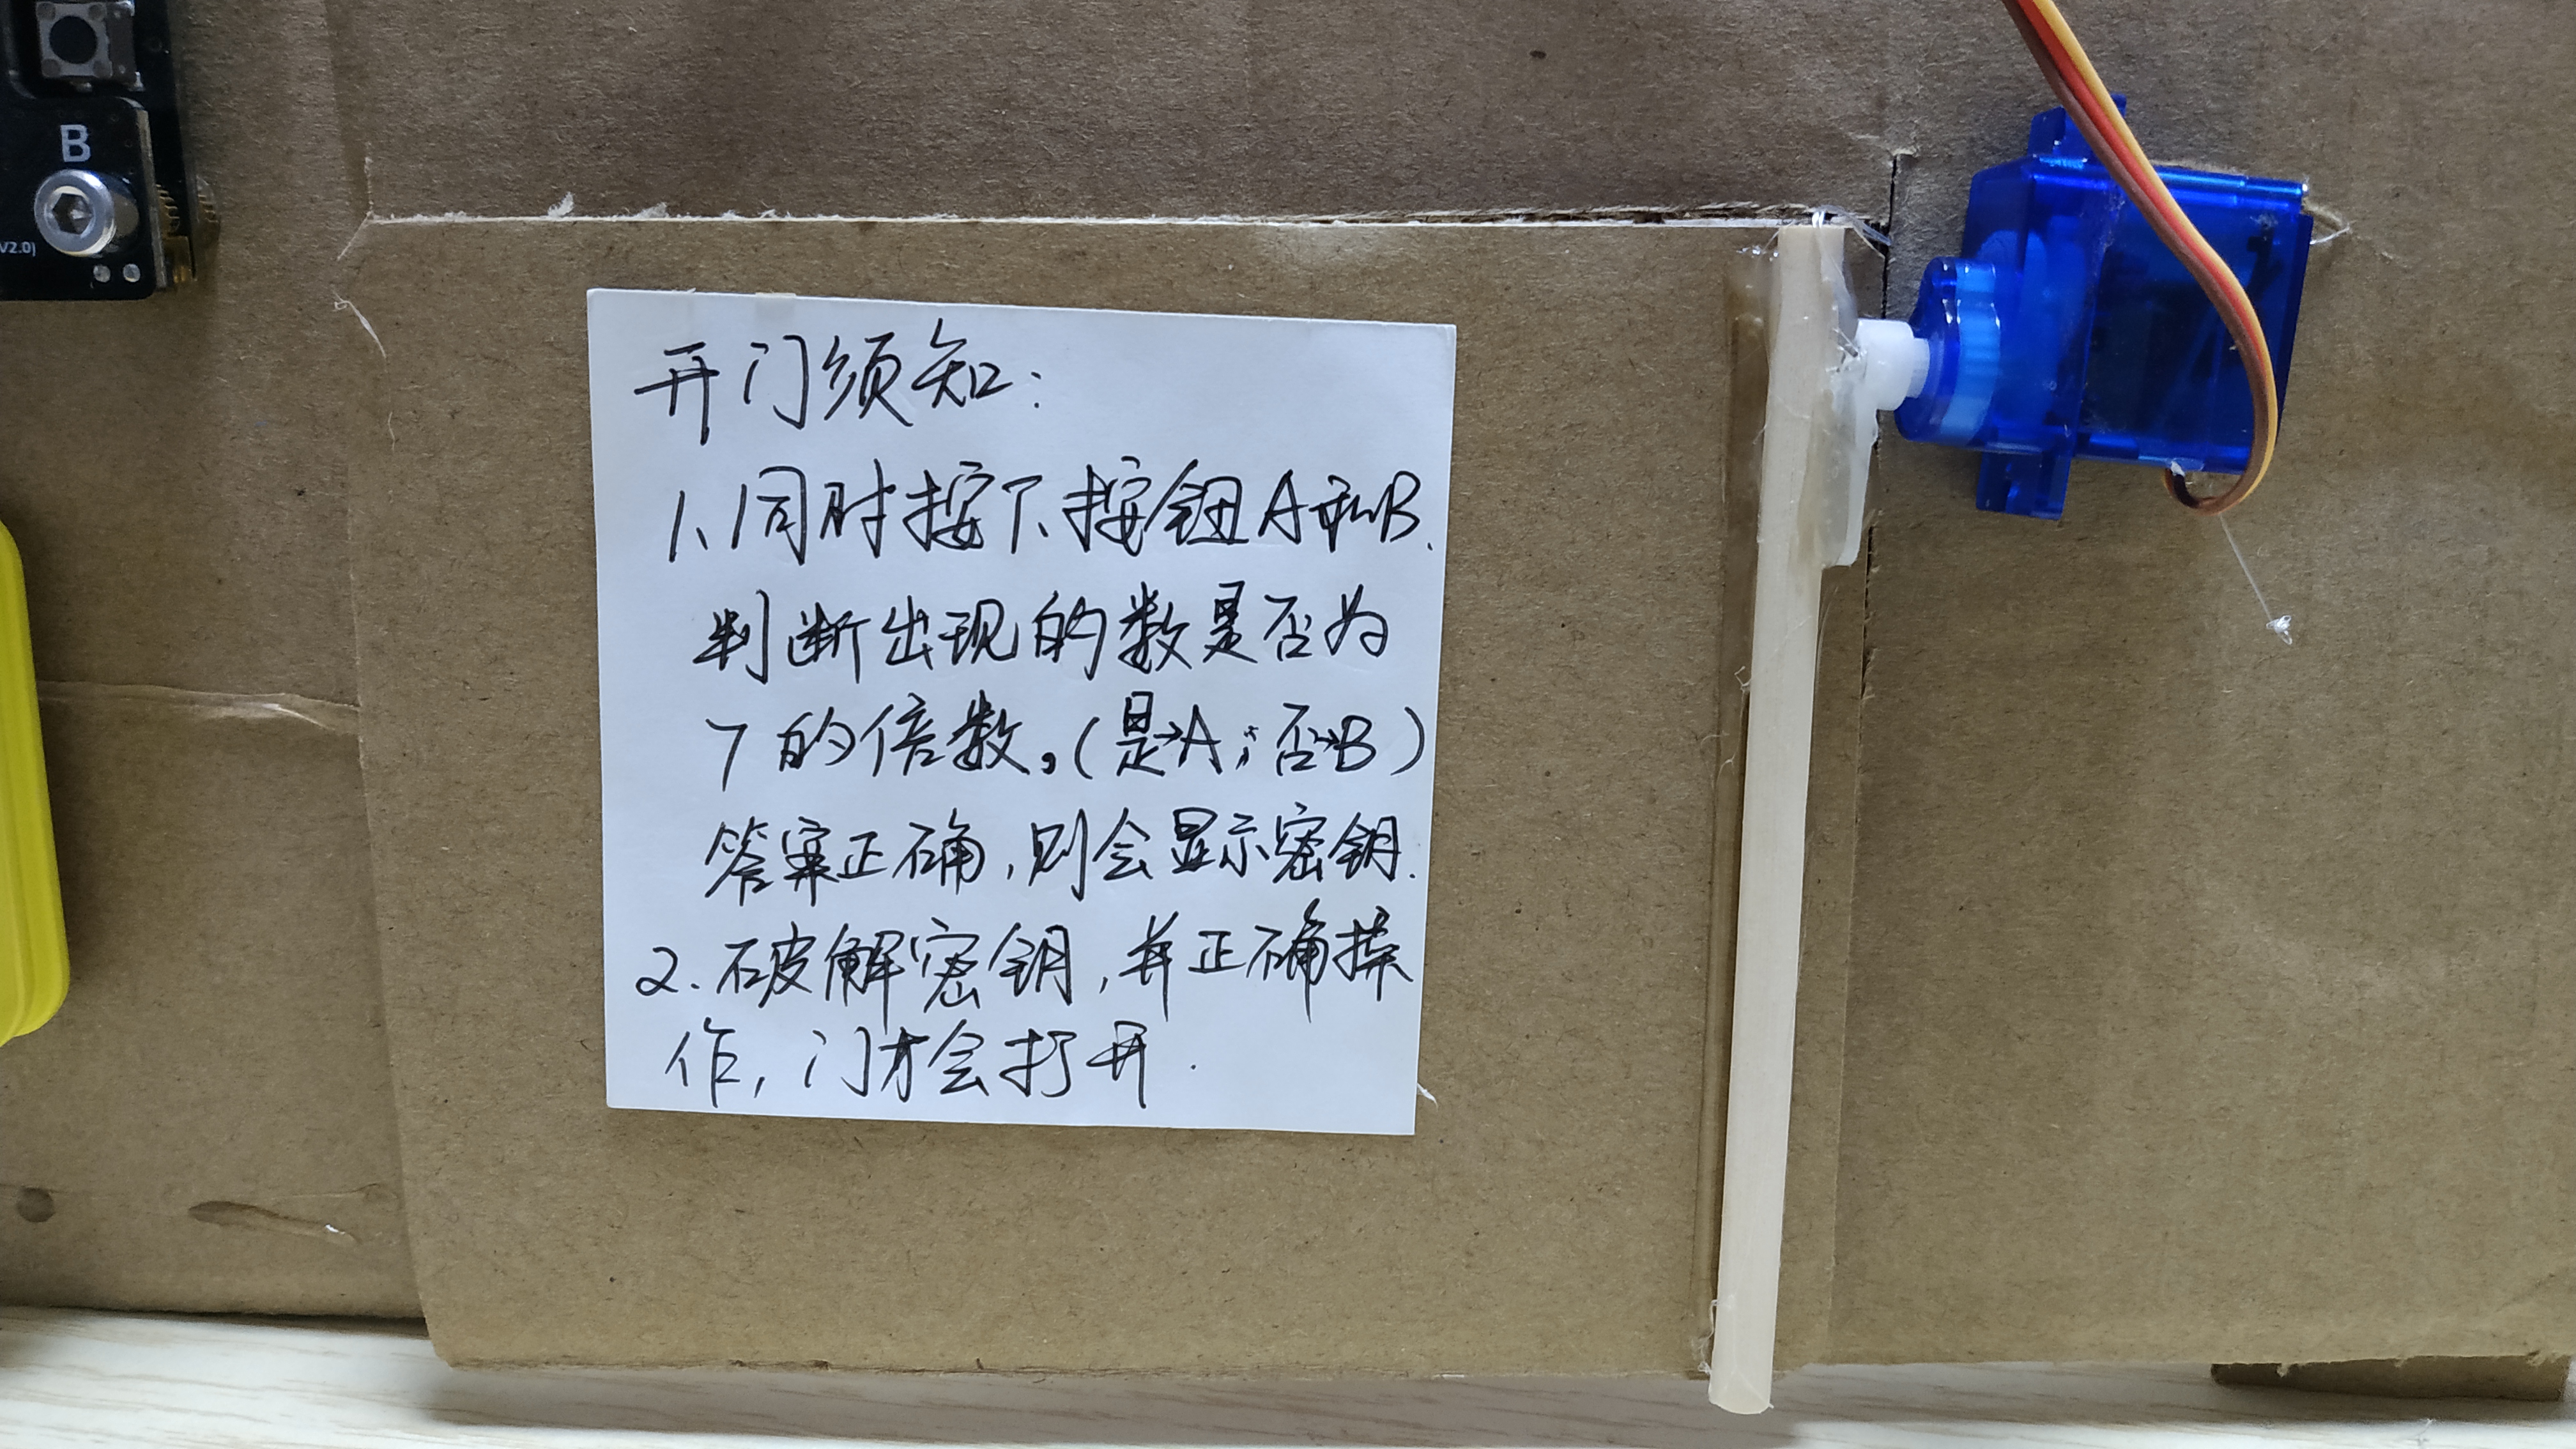 B
V2.0)
开门须知：
1、同时按下按钮A和B.
判断出现的数是否为
7的倍数。(是→A；否→B)
答案正确,则会显示密钥.
2.破解密钥,并正确操
作,门才会打开.